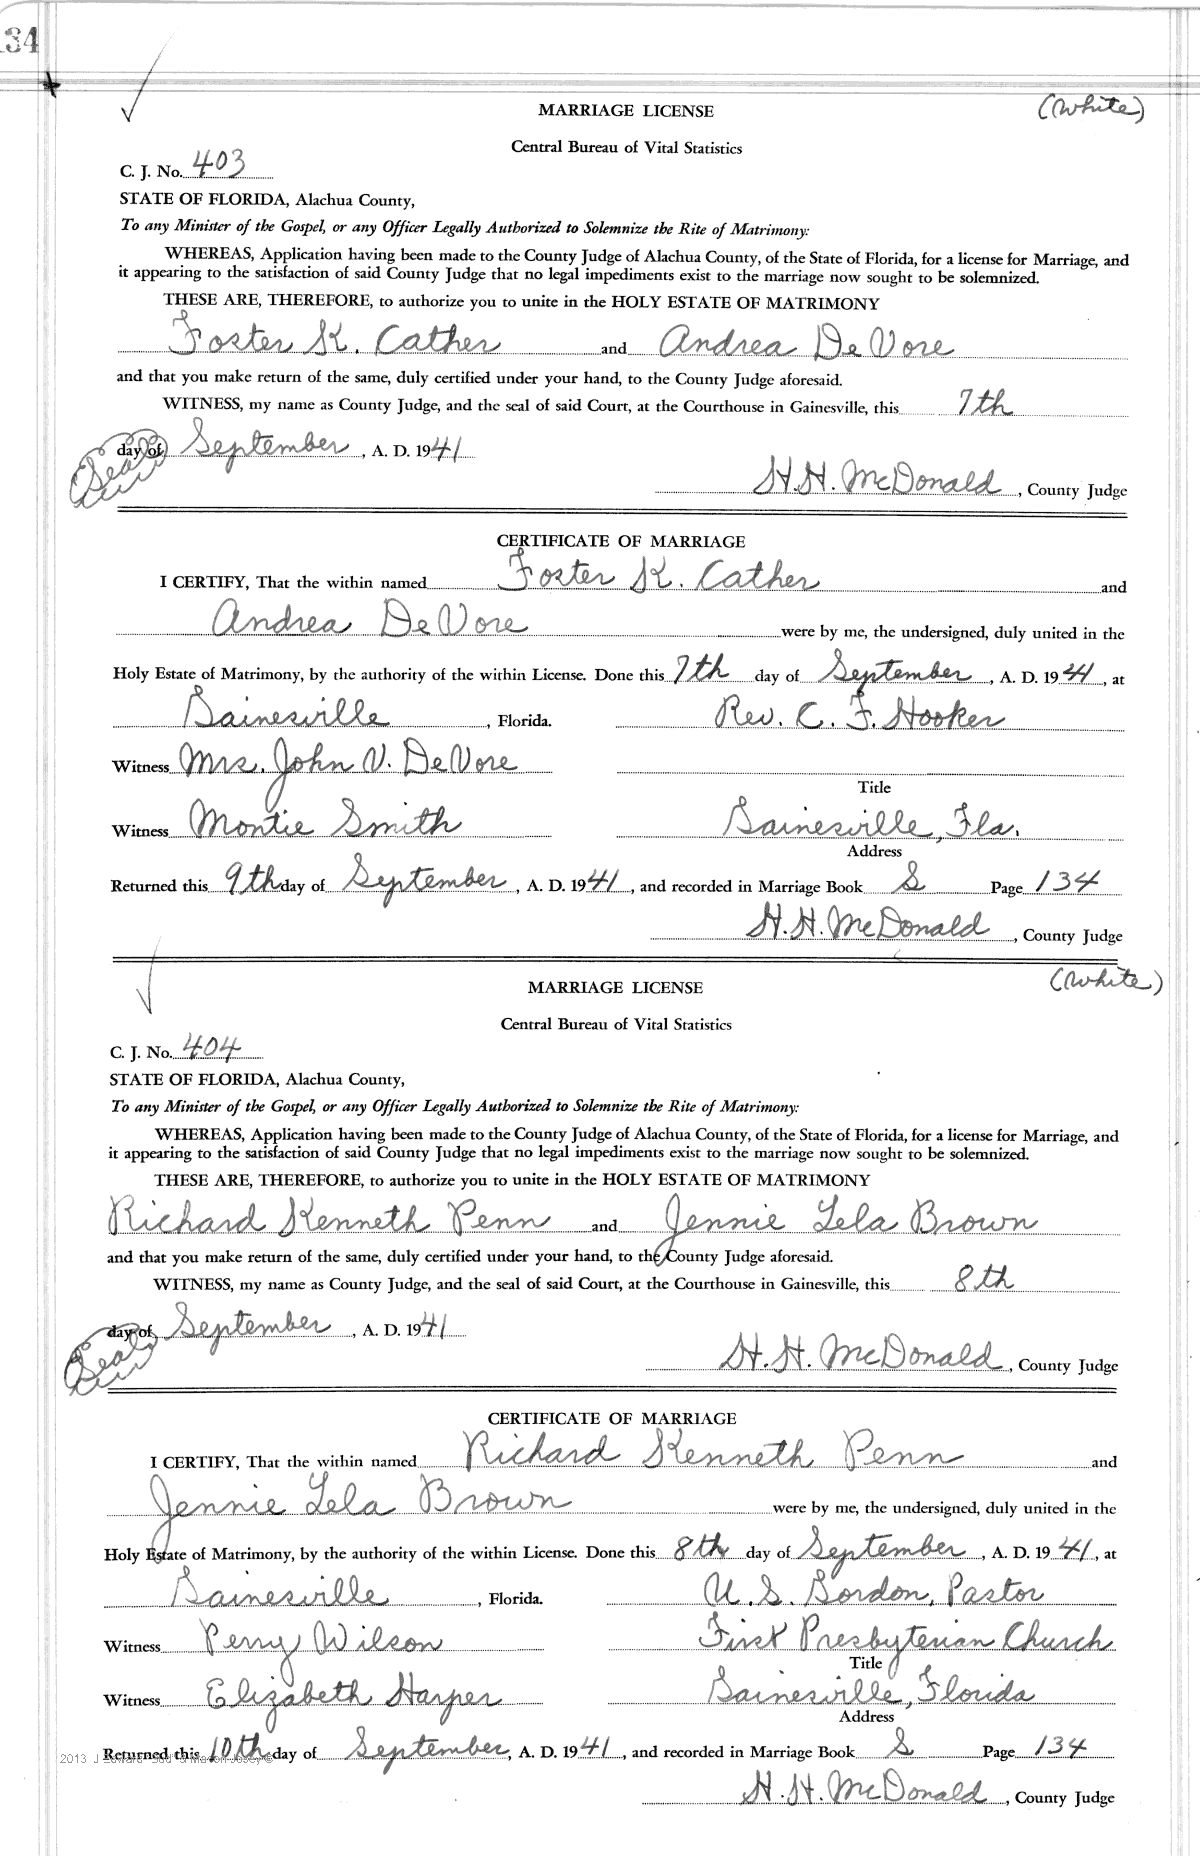 134
MARRIAGE LICENSE (White)
Central Bureau of Vital Statistics
C. J. No. 403
STATE OF FLORIDA, Alachua County,
To any Minister of the Gospel, or any Officer Legally Authorized to Solemnize the Rite of Matrimony:
WHEREAS, Application having been made to the County Judge of Alachua County, of the State of Florida, for a license for Marriage, and
it appearing to the satisfaction of said County Judge that no legal impediments exist to the marriage now sought to be solemnized.
THESE ARE, THEREFORE, to authorize you to unite in the HOLY ESTATE OF MATRIMONY
Foster K. Cather and Andrea DeVore
and that you make return of the same, duly certified under your hand, to the County Judge aforesaid.
WITNESS, my name as County Judge, and the seal of said Court, at the Courthouse in Gainesville, this 7th
day of September, A. D. 1941
Seal
H.H. McDonald, County Judge
CERTIFICATE OF MARRIAGE
I CERTIFY, That the within named Foster K. Cather and
Andrea DeVore were by me, the undersigned, duly united in the
Holy Estate of Matrimony, by the authority of the within License. Done this 7th day of September, A. D. 1941, at
Gainesville, Florida. Rev. C. F. Hooker
Witness Mrs. John V. DeVore
Title
Witness Montie Smith Gainesville, Fla.
Address
Returned this 9th day of September, A. D. 1941, and recorded in Marriage Book S Page 134
H. H. McDonald, County Judge
MARRIAGE LICENSE (White)
Central Bureau of Vital Statistics
C. J. No. 404
STATE OF FLORIDA, Alachua County,
To any Minister of the Gospel, or any Officer Legally Authorized to Solemnize the Rite of Matrimony:
WHEREAS, Application having been made to the County Judge of Alachua County, of the State of Florida, for a license for Marriage, and
it appearing to the satisfaction of said County Judge that no legal impediments exist to the marriage now sought to be solemnized.
THESE ARE, THEREFORE, to authorize you to unite in the HOLY ESTATE OF MATRIMONY
Richard Kenneth Penn and Jennie Lela Brown
and that you make return of the same, duly certified under your hand, to the County Judge aforesaid.
WITNESS, my name as County Judge, and the seal of said Court, at the Courthouse in Gainesville, this 8th
day of September, A. D. 1941
Seal
H. H. McDonald, County Judge
CERTIFICATE OF MARRIAGE
I CERTIFY, That the within named Richard Kenneth Penn and
Jennie Lela Brown were by me, the undersigned, duly united in the
Holy Estate of Matrimony, by the authority of the within License. Done this 8th day of September, A. D. 1941, at
Gainesville, Florida. U. S. Gordon, Pastor
Witness Perry Wilson First Presbyterian Church
Title
Witness Elizabeth Harper Gainesville, Florida
Address
2013 J
Returned this 10th day of September, A. D. 1941, and recorded in Marriage Book S Page 134
H. H. McDonald, County Judge